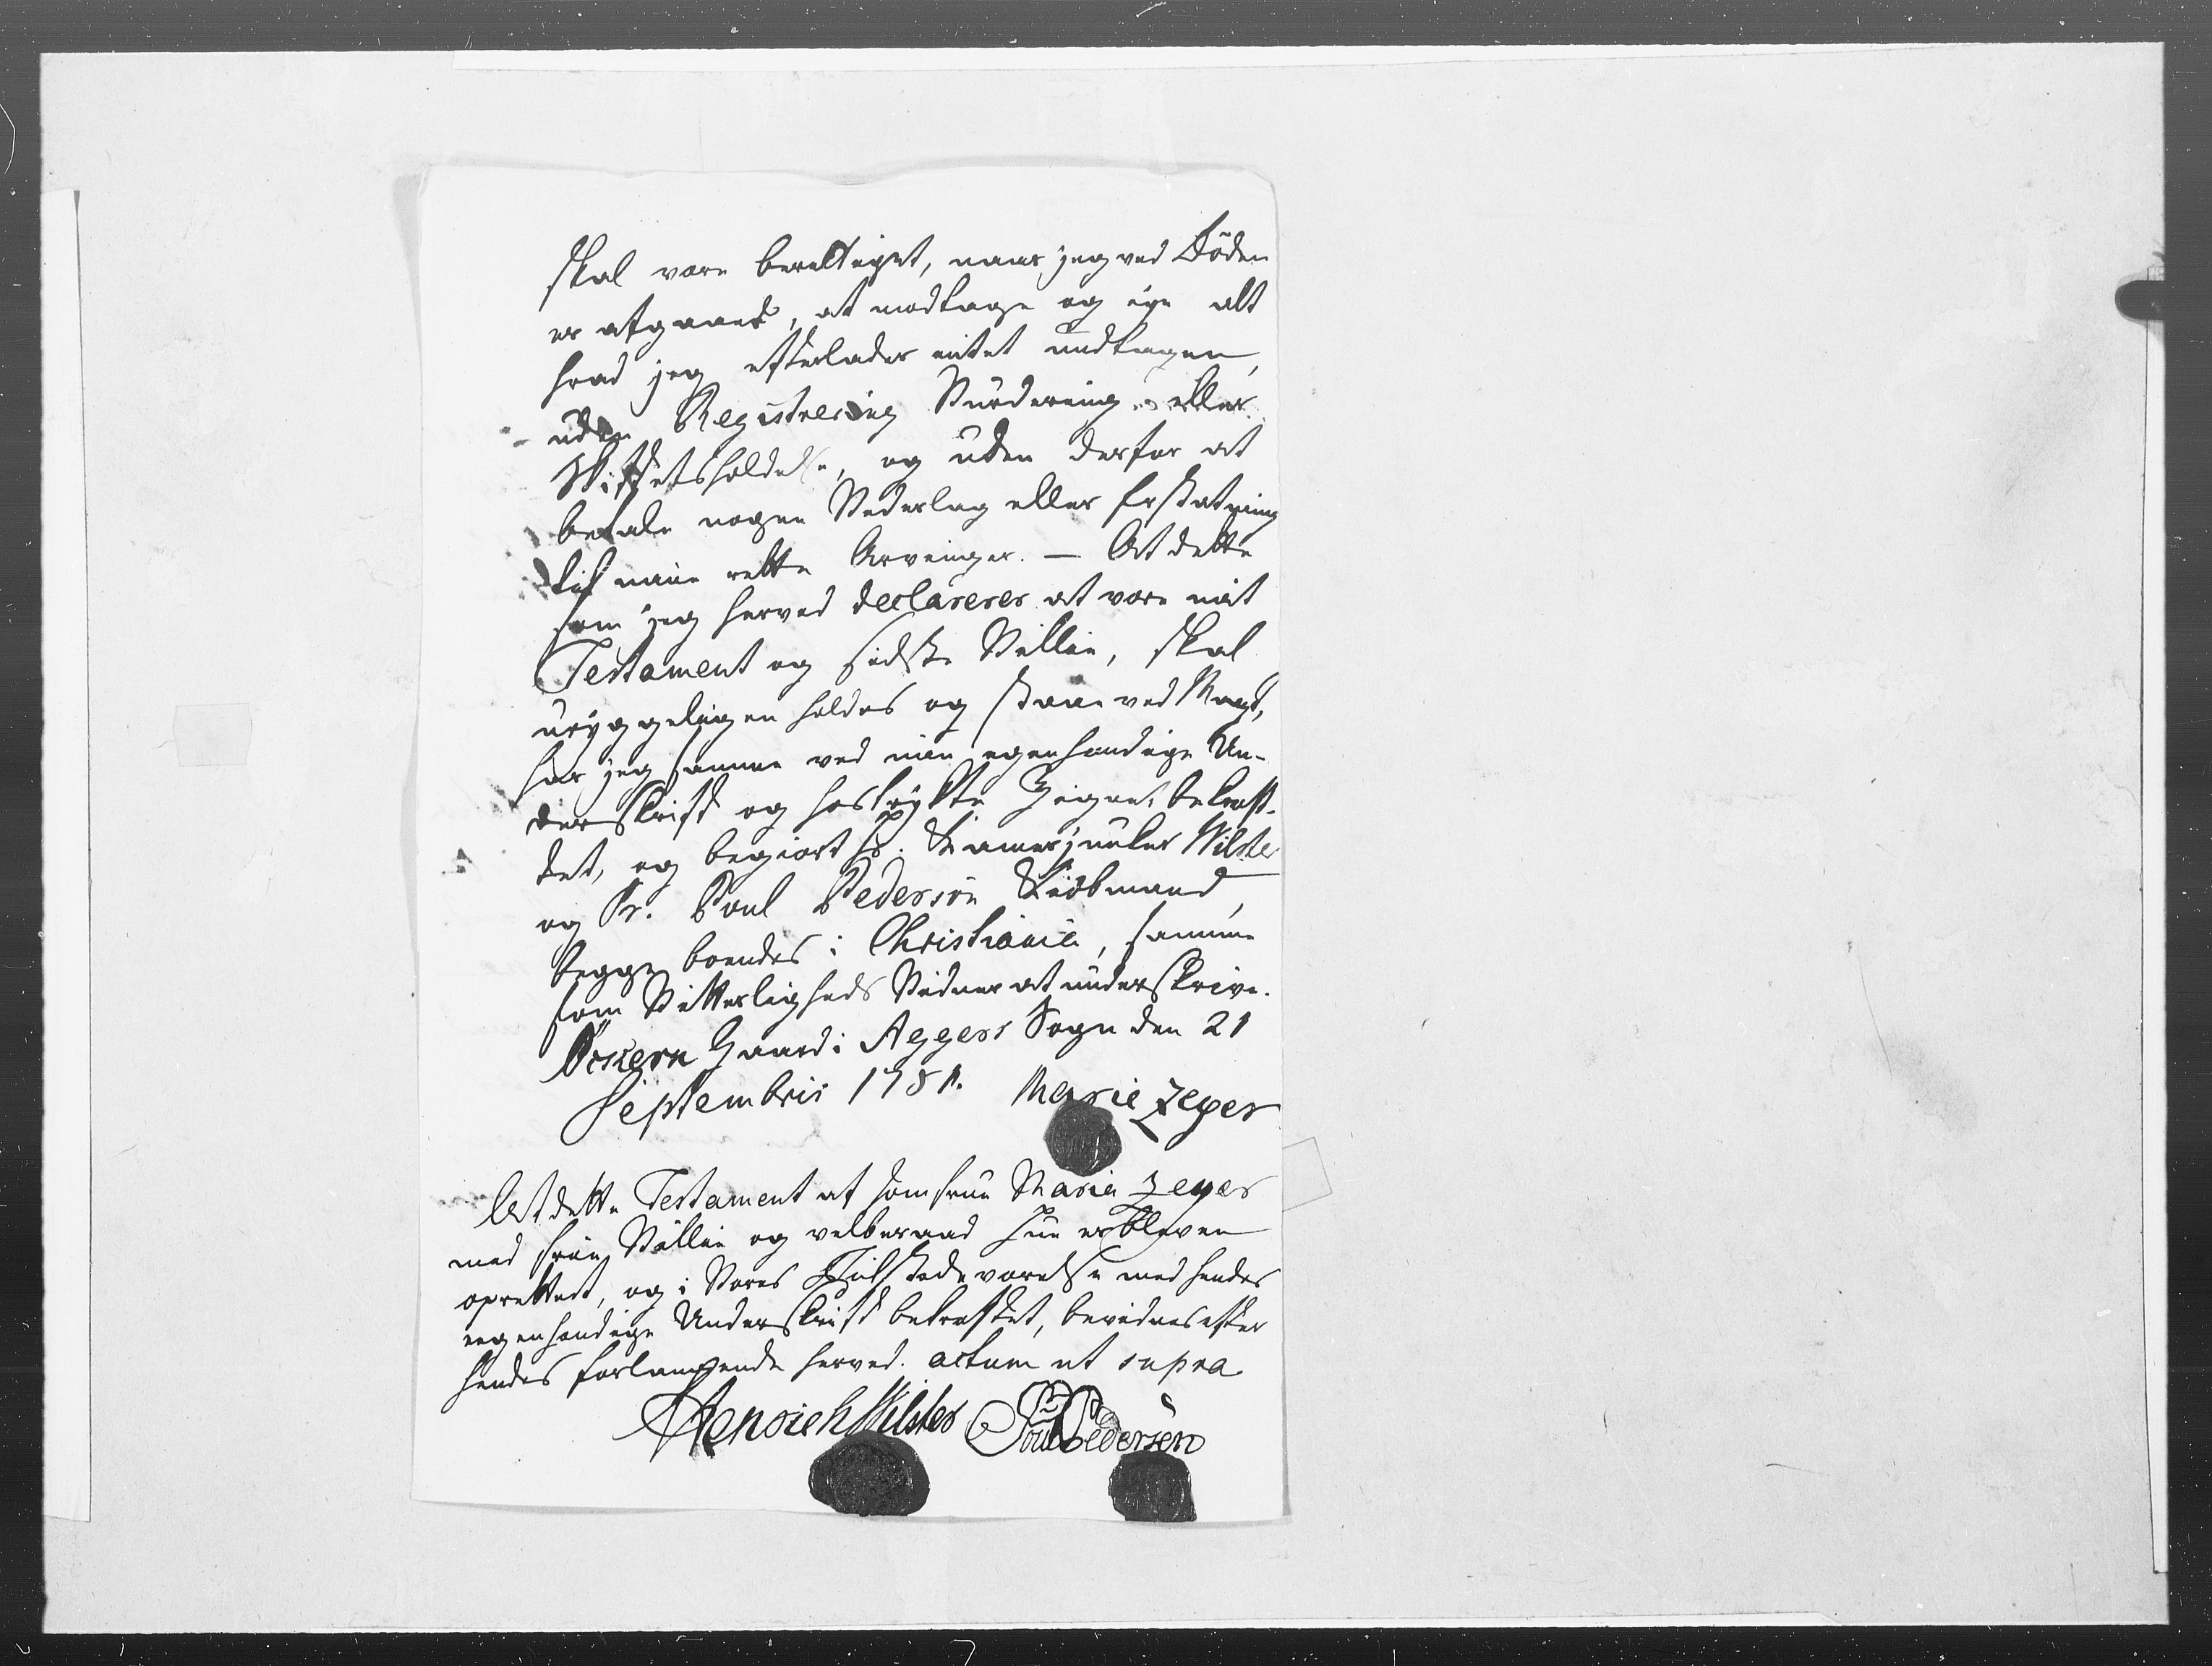 skal være berettiget, naar jeg ved Döden
er afgaaet, at modtage og eye alt
hvad jeg efterlader intet undtagen,
uden Registrering Vurdering eller
Skiftets holdelse, og uden derfor at
betale nogen Vederlag eller Erstatning
til mine rette Arvinger. — At dette
som jeg herved declarerer at være mit
Testament og sidste Villie, skal
uryggeligen holdes og staae ved Magt,
har jeg samme ved min egenhændige Un-
derskrift og hostrykte Zignet bekræf-
tet, og begiært Hr. Kamerjunker Wilster
og Sr. Poul Pedersön Kiöbmand,
begge boendes i Christiania, samme
som Vitterligheds Vidner at underskrive.
Öckern Gaard i Aggers Sogn den 21
Septembris 1781. Marie Zeyer
At dette Testament af Jomfrue Maria Zeyer
med friie Villie og velberaad Hue er bleven
oprettet, og i Vores Tilstedeværelse med hendes
egenhændige Underskrift bekræftet, bevidnes efter
hendes forlangende herved. actum ut supra
Henrich Wilster Poul Pedersen